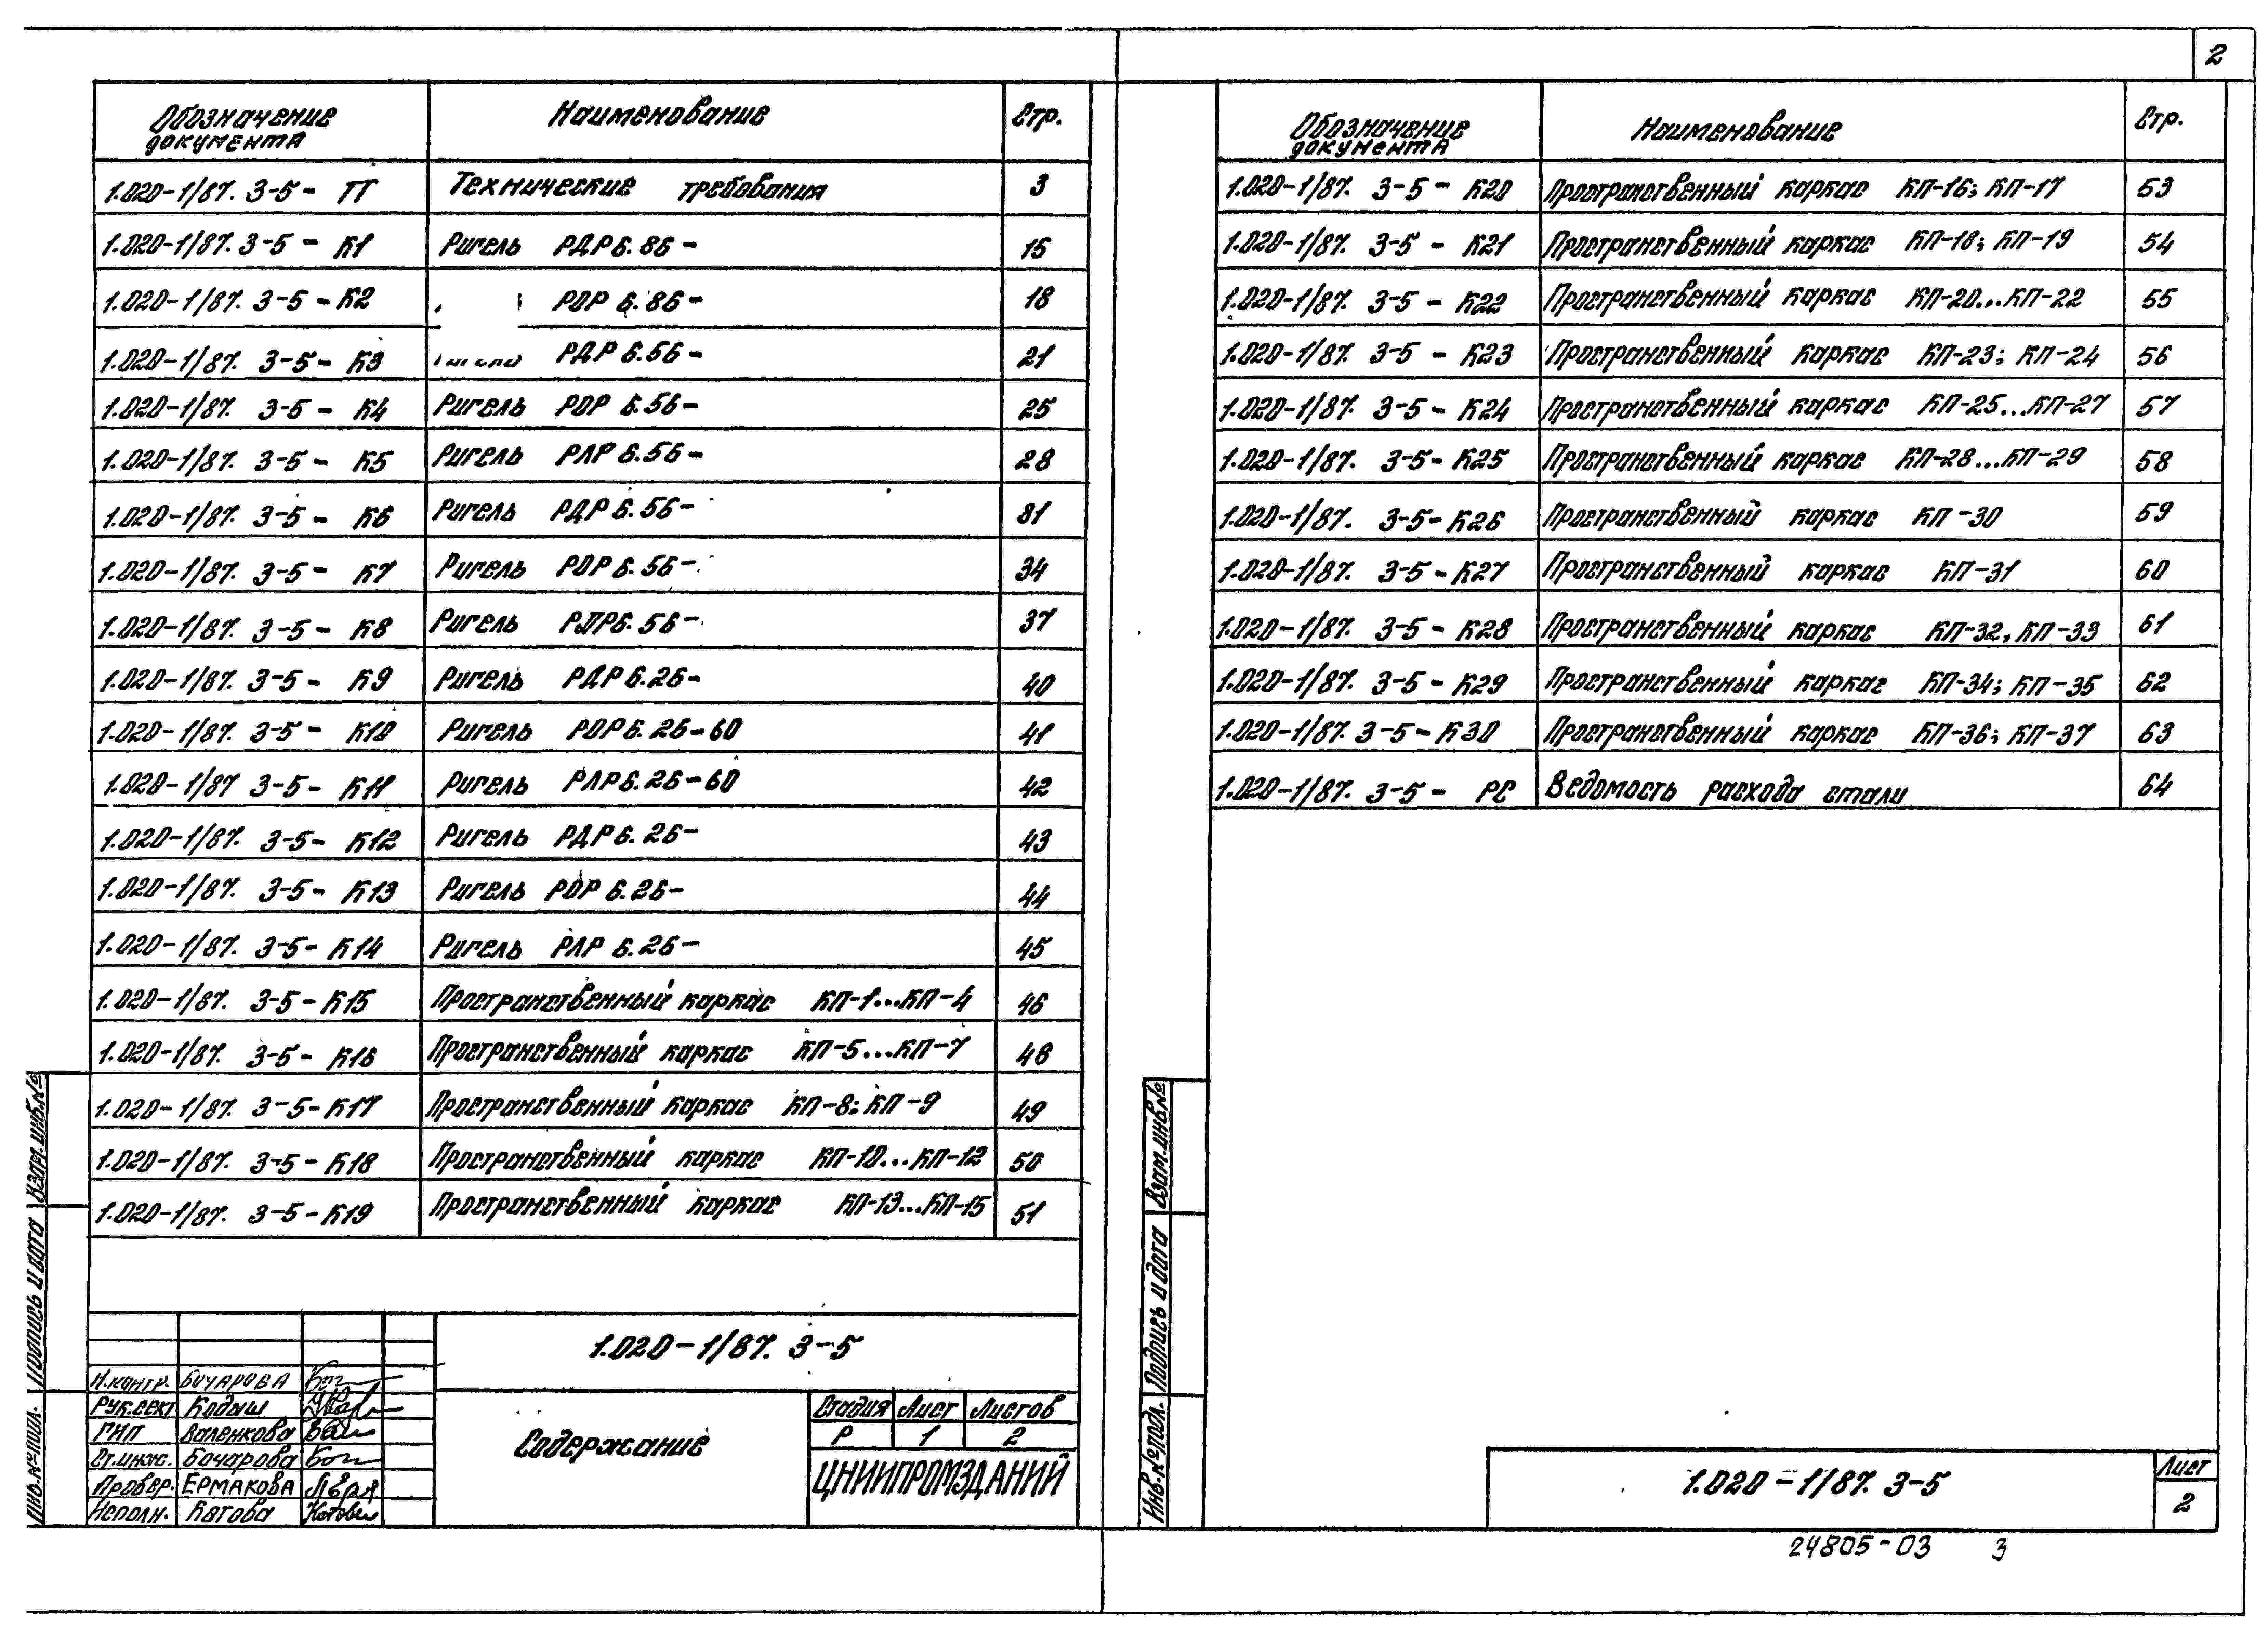 2
Обозначение документа Наименование Стр.
1.020-1/87. 3-5 - ТТ Технические требования 3
1.020-1/87. 3-5 - К1 Ригель РДР 6.86- 15
1.020-1/87. 3-5 - К2 РОР 6.86- 18
1.020-1/87. 3-5 - К3 РДР 6.56- 21
1.020-1/87. 3-5 - К4 Ригель РОР 6.56- 25
1.020-1/87. 3-5 - К5 Ригель РЛР 6.56- 28
1.020-1/87. 3-5 - К6 Ригель РДР 6.56- 31
1.020-1/87. 3-5 - К7 Ригель РОР 6.56- 34
1.020-1/87. 3-5 - К8 Ригель РЛР 6.56- 37
1.020-1/87. 3-5 - К9 Ригель РДР 6.26- 40
1.020-1/87. 3-5 - К10 Ригель РОР 6.26-60 41
1.020-1/87 3-5 - К11 Ригель РЛР 6.26-60 42
1.020-1/87. 3-5 - К12 Ригель РДР 6.26- 43
1.020-1/87. 3-5 - К13 Ригель РОР 6.26- 44
1.020-1/87. 3-5 - К14 Ригель РЛР 6.26- 45
1.020-1/87. 3-5 - К15 Пространственный каркас КП-1...КП-4 46
1.020-1/87. 3-5 - К16 Пространственный каркас КП-5...КП-7 48
1.020-1/87. 3-5 - К17 Пространственный каркас КП-8; КП-9 49
1.020-1/87. 3-5 - К18 Пространственный каркас КП-10...КП-12 50
1.020-1/87. 3-5 - К19 Пространственный каркас КП-13...КП-15 51
1.020-1/87. 3-5
Содержание
Стадия Лист Листов
Р 1 2
ЦНИИПРОМЗДАНИЙ
Н.контр. Бочарова
Рук.сект Кодыш
ГИПВаленкова
Ст.инж. Бочарова
Провер. Ермакова
Исполн. Котова
Взам.инв.№
Подпись и дата
Инв.№подл.
Обозначение документа Наименование Стр.
1.020-1/87. 3-5 - К20 Пространственный каркас КП-16; КП-17 53
1.020-1/87. 3-5 - К21 Пространственный каркас КП-18; КП-19 54
1.020-1/87. 3-5 - К22 Пространственный каркас КП-20...КП-22 55
1.020-1/87. 3-5 - К23 Пространственный каркас КП-23; КП-24 56
1.020-1/87. 3-5 - К24 Пространственный каркас КП-25...КП-27 57
1.020-1/87. 3-5 - К25 Пространственный каркас КП-28...КП-29 58
1.020-1/87. 3-5 - К26 Пространственный каркас КП-30 59
1.020-1/87. 3-5 - К27 Пространственный каркас КП-31 60
1.020-1/87. 3-5 - К28 Пространственный каркас КП-32, КП-33 61
1.020-1/87. 3-5 - К29 Пространственный каркас КП-34; КП-35 62
1.020-1/87. 3-5 - К30 Пространственный каркас КП-36; КП-37 63
1.020-1/87. 3-5 - РС Ведомость расхода стали 64
Взам.инв№
Подпись и дата
Инв.№подл.
1.020-1/87. 3-5
Лист
2
24805-03 3